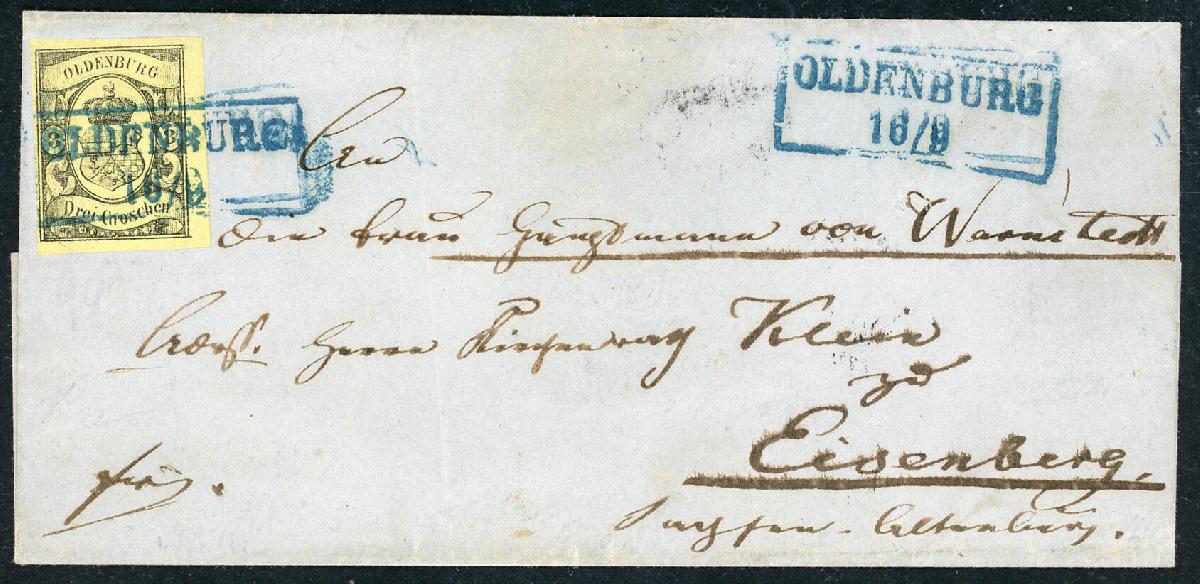 OLDENBURG
3 3
Drei Groschen
OLDENBURG
16/9
OLDENBURG
16/9
An
die Frau Hauptmann von Warnstedt
Adress. Herrn Kirchenrath Klein
zu
Eisenberg.
frei.
Sachsen-Altenburg.